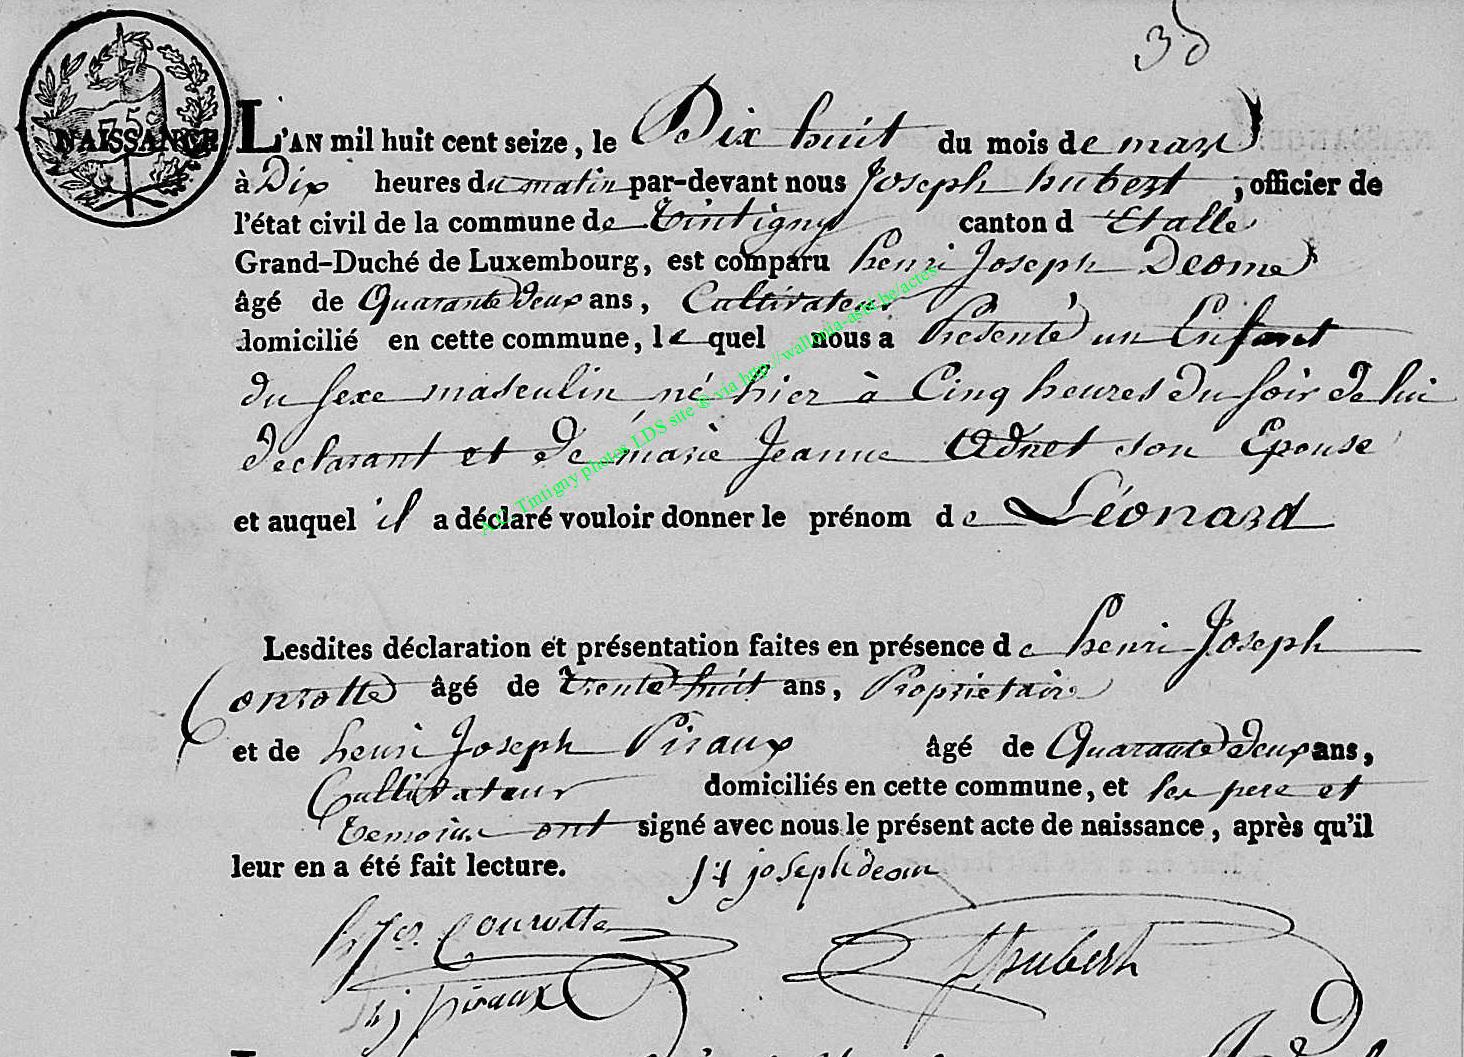 38
75
NAISSANCE
L'AN mil huit cent seize, le Dix huit du mois de mars
à Dix heures du matin par-devant nous Joseph hubert, officier de
l'état civil de la commune de Tintigny canton d'Etalle
Grand-Duché de Luxembourg, est comparu henri Joseph Deome
âgé de Quarante deux ans, Cultivateur
domicilié en cette commune, lequel nous a Présenté un Enfant
du sexe masculin né hier à Cinq heures du soir de lui
déclarant et de marie Jeanne Adnet son Epouse
et auquel il a déclaré vouloir donner le prénom de Léonard
A.C. Tintigny photos LDS site ® via http://wallonia-asbl.be/actes
Lesdites déclaration et présentation faites en présence de henri Joseph
Conrotte âgé de trente huit ans, Propriétaire
et de henri Joseph Piraux âgé de Quarante deux ans,
Cultivateur domiciliés en cette commune, et les pere et
temoins ont signé avec nous le présent acte de naissance, après qu'il
leur en a été fait lecture.
joseph deom
Conrotte
hubert
hj piraux